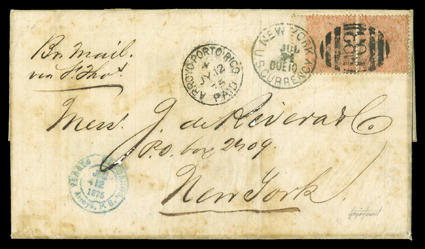 By Mail.
via St. Thos.
ARROYO-PORTO RICO
JY 12
75
PAID
NEW YORK
JUL
DUE 10
U.S. CURRENCY
Mess. J. de Rivera & Co.
P.O. box 2709.
New York
12
1875